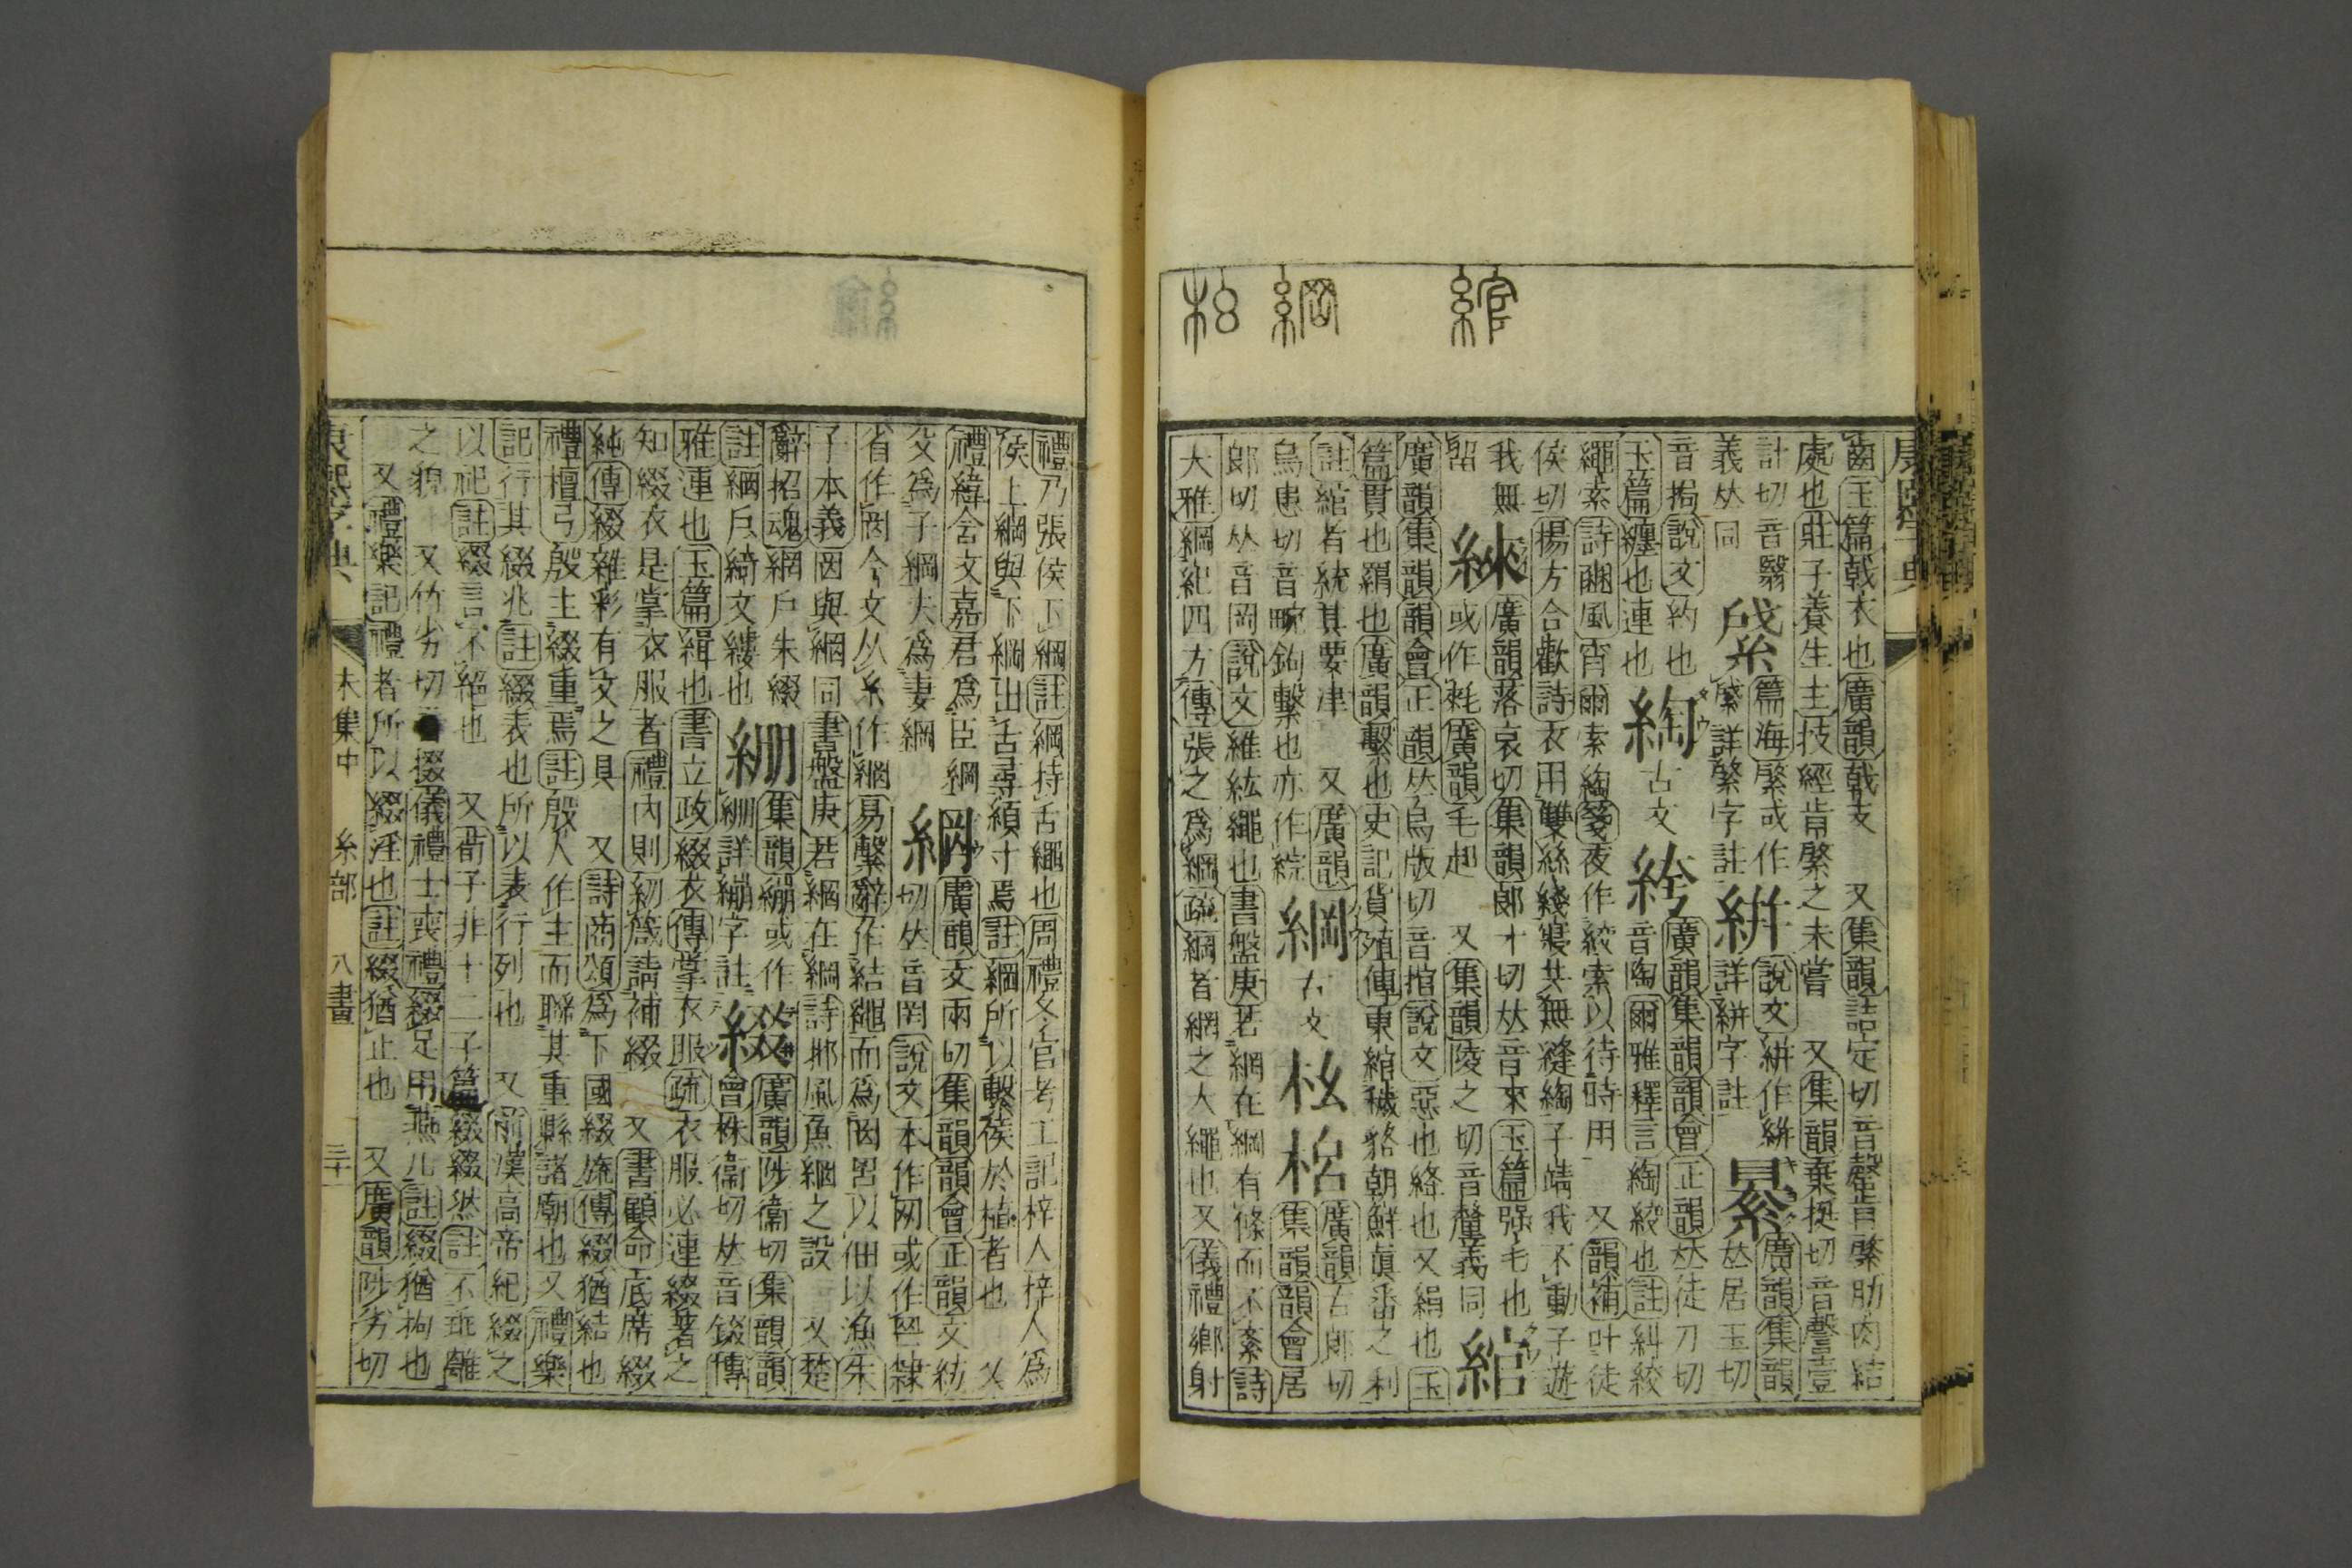 綰
綱
康熙字典
玉篇戟衣也廣韻戟支 又集韻詰定切音罄肯綮肋肉結
處也莊子養生主技經肯綮之未嘗 又集韻棄挺切音謦壹
計切音翳
義𠀤同
篇海綮或作
綮詳綮字註
絣
說文絣作絣
詳絣字註
廣韻集韻
𠀤居玉切
音挶說文約也
玉篇纏也連也
綯
古文
廣韻集韻韻會正韻𠀤徒刀切
音陶爾雅釋言綯絞也註糾絞
繩索詩豳風宵爾索綯箋夜作絞索以待時用 又韻補叶徒
侯切揚方合歡詩衣用雙絲綫寢共無縫綯子靖我不動子遊
我無
留
廣韻落哀切集韻郎才切𠀤音來玉篇强毛也
或作氂廣韻毛起 又集韻陵之切音釐義同
綰
廣韻集韻韻會正韻𠀤烏版切音捾說文惡也絳也又絹也玉
篇貫也羂也廣韻繫也史記貨殖傳東綰穢貉朝鮮眞番之利
註綰者統其要津 又廣韻
烏患切音腕鉤繫也亦作綄
綱
古文
棡
廣韻古郎切
集韻韻會居
郎切𠀤音岡說文維紘繩也書盤庚若網在綱有條而不紊詩
大雅綱紀四方傳張之爲綱疏綱者網之大繩也又儀禮鄉射
禮乃張侯下綱註綱持舌繩也周禮冬官考工記梓人梓人爲
侯上綱與下綱出舌尋縜寸焉註綱所以繫侯於植者也 又
禮緯含文嘉君爲臣綱
父爲子綱夫爲妻綱
網
廣韻文兩切集韻韻會正韻文紡
切𠀤音罔說文本作网或作𦉰隸
省作罔今文从糸作網易繫辭作結繩而爲罔罟以佃以漁朱
子本義罔與網同書盤庚若網在綱詩邶風魚網之設 又楚
辭招魂網戶朱綴
註網戶綺文縷也
綳
集韻繃或作
綳詳繃字註
綴
廣韻陟衞切集韻韻
會株衞切𠀤音錣傳
雅連也玉篇緝也書立政綴衣傳掌衣服疏衣服必連綴著之
知綴衣是掌衣服者禮內則紉箴請補綴 又書顧命底席綴
純傳綴雜彩有文之貝 又詩商頌爲下國綴旒傳綴猶結也
禮檀弓殷主綴重焉註殷人作主而聯其重縣諸廟也又禮樂
記行其綴兆註綴表也所以表行列也 又前漢高帝紀綴之
以祀註綴言不絕也 又荀子非十二子篇綴綴然註不乖離
之貌 又竹劣切音掇儀禮士喪禮綴足用燕几註綴猶拘也
又禮樂記禮者所以綴淫也註綴猶止也 又廣韻陟劣切
康熙字典 未集中 糸部 八畫 三十一